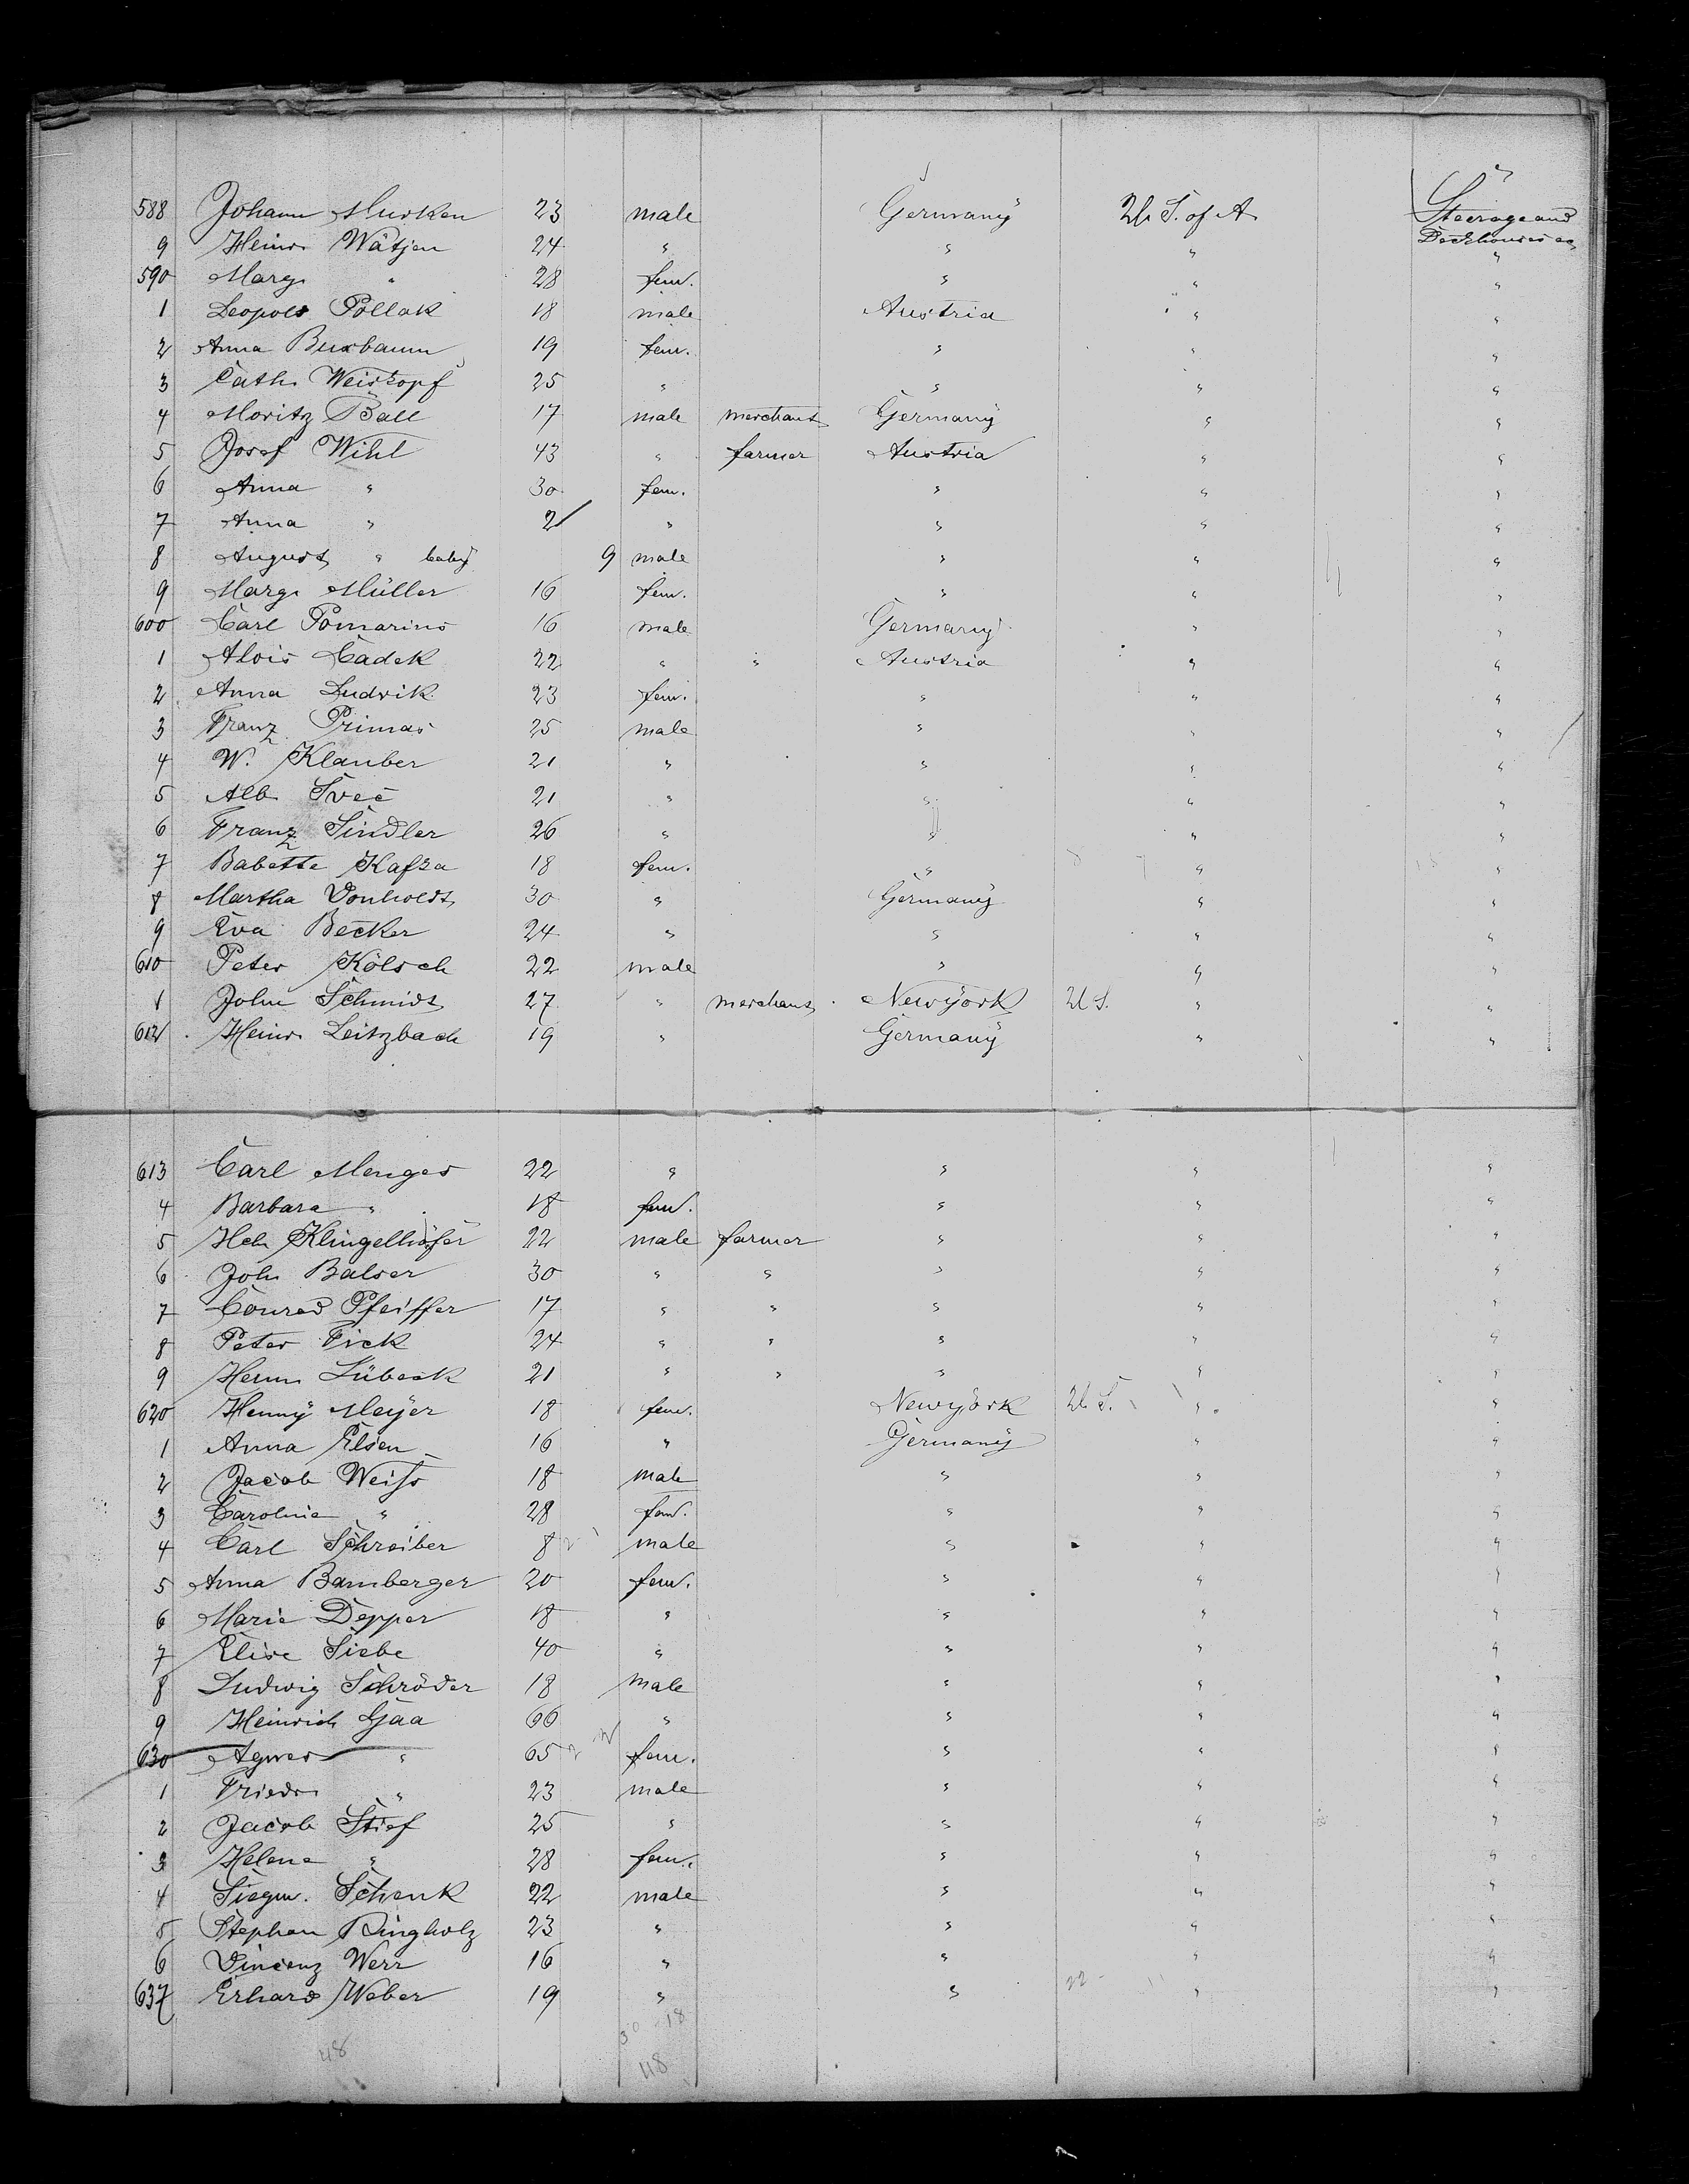 588 Johann Murken 23 male Germany U. S. of A. Steerage and
9 Heinr. Wätjen 24 " " " Deckhouses "
590 Marg. " 28 fem. " " "
1 Leopold Pollak 18 male Austria " "
2 Anna Buxbaum 19 fem. " " "
3 Cath. Weiskopf 25 " " " "
4 Moritz Ball 17 male merchant Germany " "
5 Josef Wihl 43 " farmer Austria " "
6 Anna " 30 fem. " " "
7 Anna " 2 " " " "
8 August " baby 9 male " " "
9 Marg. Müller 16 fem. " " "
600 Carl Pomarius 16 male Germany " "
1 Alois Cadek 22 " " Austria " "
2 Anna Ludvik 23 fem. " " "
3 Franz Primas 25 male " " "
4 W. Klauber 21 " " " "
5 Alb. Svec 21 " " " "
6 Franz Sindler 26 " " " "
7 Babette Kafka 18 fem. " " "
8 Martha Vonholdt 30 " Germany " "
9 Eva Becker 24 " " " "
610 Peter Kölsch 22 male " " "
1 John Schmidt 27 " merchant Newyork U. S. " "
612 Heinr. Leitzbach 19 " Germany " "
613 Carl Menges 22 " " " "
4 Barbara " 18 fem. " " "
5 Hch Klingelhöfer 22 male farmer " " "
6 Joh. Balser 30 " " " " "
7 Conrad Pfeiffer 17 " " " " "
8 Peter Fick 24 " " " " "
9 Herm. Lübeck 21 " " " " "
620 Henny Meyer 18 fem. Newyork U. S. " "
1 Anna Elsen 16 " Germany " "
2 Jacob Weiss 18 male " " "
3 Caroline " 28 fem. " " "
4 Carl Schreiber 8 male " " "
5 Anna Bamberger 20 fem. " " "
6 Marie Depper 18 " " " "
7 Elise Siebe 40 " " " "
8 Ludwig Schröder 18 male " " "
9 Heinrich Gaa 66 " " " "
630 Agnes " 65 fem. " " "
1 Friedr. " 23 male " " "
2 Jacob Stief 25 " " " "
3 Helene " 28 fem. " " "
4 Siegm. Schenk 22 male " " "
5 Stephan Ringholz 23 " " " "
6 Vincenz Werr 16 " " " "
637 Erhard Weber 19 " " " "
30 18
48 48